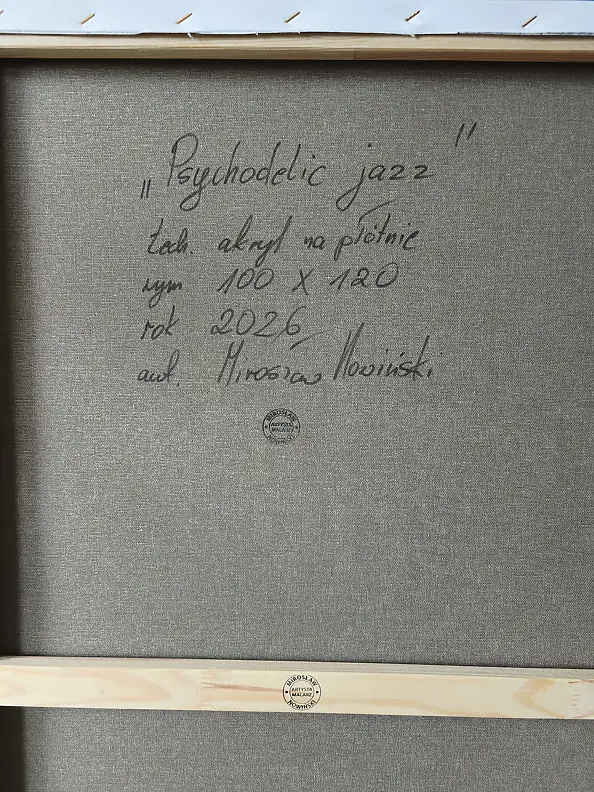 „Psychodelic jazz"
tech. akryl na płótnie
wym 100 X 120
rok 2026
aut. Mirosław Nowiński
MIROSŁAW
ARTYSTA
MALARZ
NOWIŃSKI
MIROSŁAW
ARTYSTA
MALARZ
NOWIŃSKI